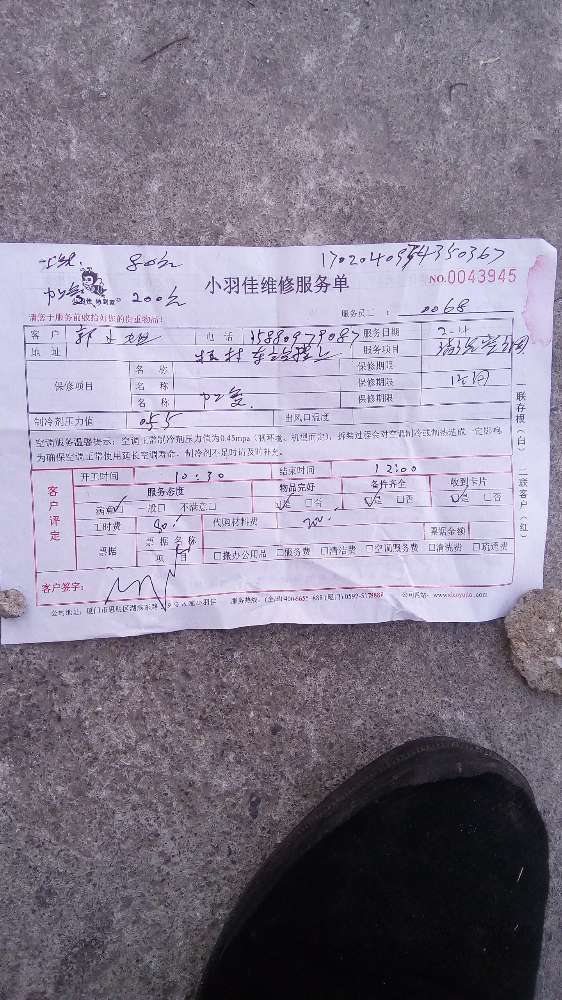 80元 17020409543503​67
小羽佳维修服务单 NO.0043945
200元
请您于服务前收拾好您的贵重物品! 服务员工: 0068
客户 郭小姐 电话 15880979087 服务日期 2-11
地址 服务项目
保修项目 名称 保修期限
名称 保修期限
名称 加氟 保修期限
制冷剂压力值 055 出风口温度
空调服务温馨提示:空调正常制冷剂压力值为0.45mpa(视环境、机型而定),拆装过程会对空调制冷或制热造成一定影响,
为确保空调正常使用延长空调寿命,制冷剂不足时请及时补充。
一联存根(白) 二联客户(红)
客户评定
开工时间 10:30 结束时间 12:00
服务态度 物品完好 备件齐全 收到卡片
满意□ 一般□ 不满意□ 是 □否 是 □否 是 □否
工时费 80 代购材料费 200 票据金额
票据 票据名称
项目 □办公用品 □服务费 □清洁费 □空调服务费 □清洗费 □疏通费
客户签字:
公司地址:厦门市思明区湖滨东路 服务热线: